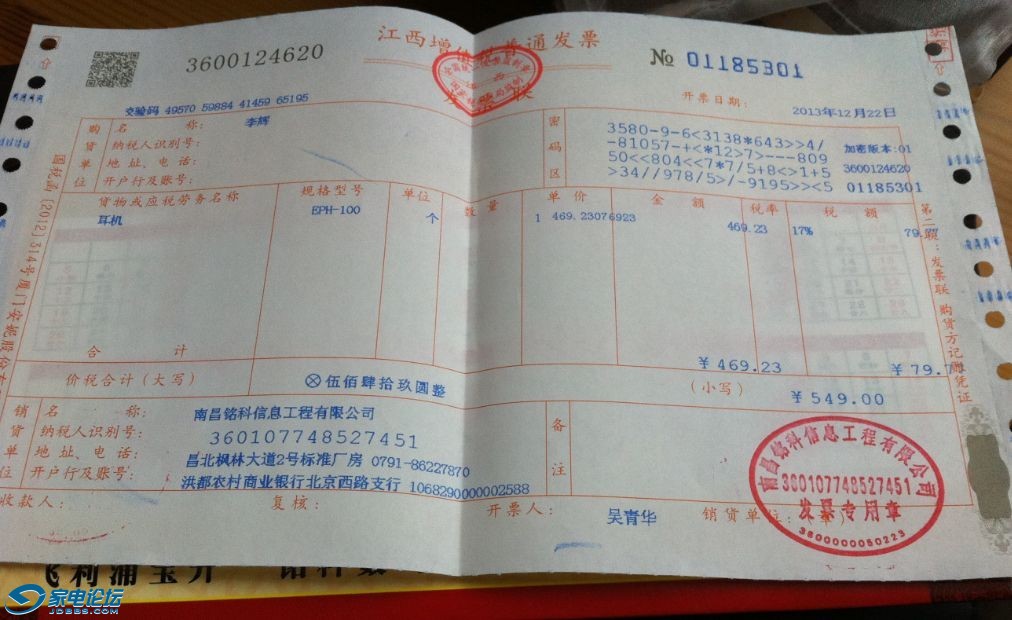 江西增值税普通发票
3600124620
№ 01185301
开票日期: 2013年12月22日
校验码 49570 59884 41459 65195
购货单位
名 称: 李辉
纳税人识别号:
地 址、电 话:
开户行及账号:
密码区
3580-9-6<3138*643>>4/
-81057-+<*12>7>---809
50<<804<<7*7/5+8<>1+5
>34//978/5>/-9195>><5
加密版本:01
3600124620
01185301
货物或应税劳务名称 规格型号 单位 数 量 单 价 金 额 税率 税 额
耳机 EPH-100 个 1 469.23076923 469.23 17% 79.77
合 计 ¥469.23 ¥79.7
价税合计(大写) ⊗伍佰肆拾玖圆整 (小写) ¥549.00
销货单位
名 称: 南昌铭科信息工程有限公司
纳税人识别号: 360107748527451
地 址、电 话: 昌北枫林大道2号标准厂房 0791-86227870
开户行及账号: 洪都农村商业银行北京西路支行 1068290000002588
备注
收款人: 复核: 开票人: 吴青华 销货单位:
南昌铭科信息工程有限公司
360107748527451
发票专用章
3600000060223
第二联:发票联 购货方记账凭证
国税函[2012]314号厦门安妮股份
飞利浦宝升
家电论坛
JDBBS.COM